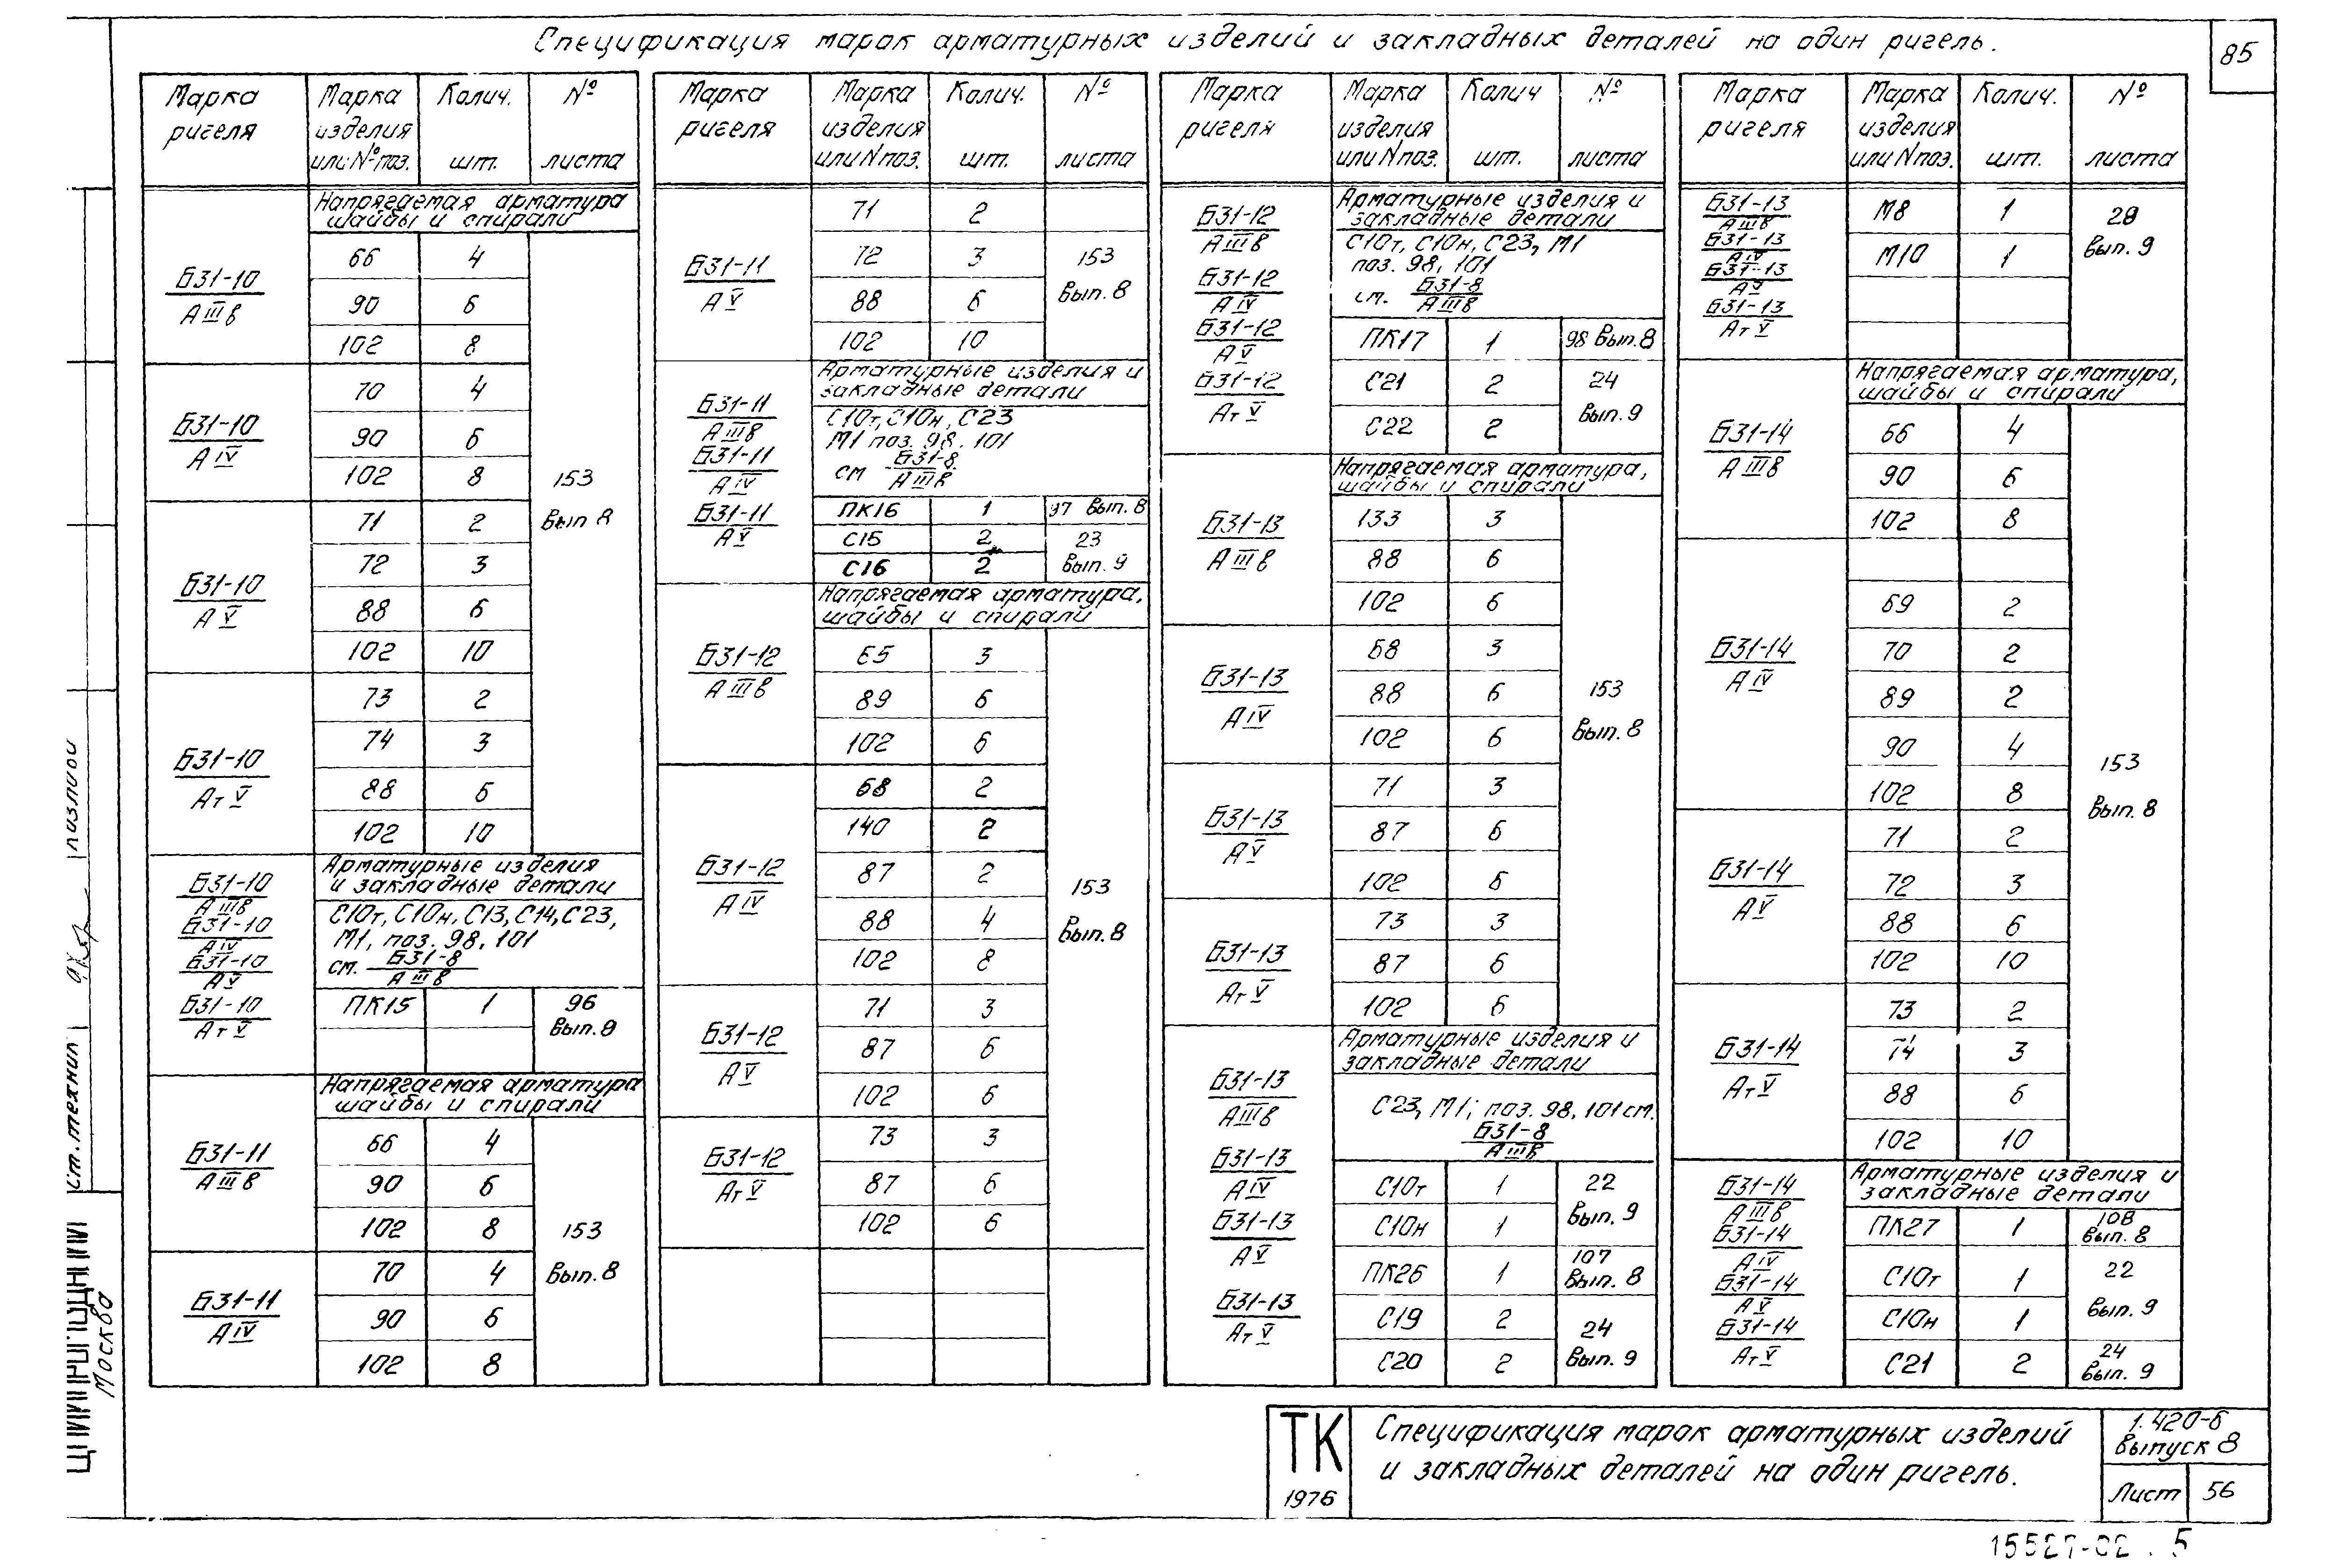 Спецификация марок арматурных изделий и закладных деталей на один ригель.
85
Марка ригеля | Марка изделия или № поз. | Колич. шт. | № листа
Напрягаемая арматура
шайбы и спирали
Б31-10 / АIIIв
66 4
90 6
102 8
Б31-10 / АIV
70 4
90 6
102 8
153
Вып 8
Б31-10 / АV
71 2
72 3
88 6
102 10
Б31-10 / АтV
73 2
74 3
88 6
102 10
Арматурные изделия
и закладные детали
Б31-10 / АIIIв
Б31-10 / АIV
Б31-10 / АV
Б31-10 / АтV
С10т, С10н, С13, С14, С23,
М1, поз. 98, 101
см. Б31-8 / АIIIв
ПК15 1 96
Вып. 8
Напрягаемая арматура
шайбы и спирали
Б31-11 / АIIIв
66 4
90 6
102 8
153
Вып. 8
Б31-11 / АIV
70 4
90 6
102 8
Марка ригеля | Марка изделия или N поз. | Колич. шт. | № листа
Б31-11 / АV
71 2
72 3
88 6
102 10
153
Вып. 8
Арматурные изделия и
закладные детали
Б31-11 / АIIIв
Б31-11 / АIV
Б31-11 / АV
С10т, С10н, С23
М1 поз. 98, 101
см Б31-8 / АIIIв
ПК16 1 97 Вып. 8
С15 2 23
С16 2 Вып. 9
Напрягаемая арматура,
шайбы и спирали
Б31-12 / АIIIв
65 3
89 6
102 6
Б31-12 / АIV
68 2
140 2
87 2
88 4
102 8
153
Вып. 8
Б31-12 / АV
71 3
87 6
102 6
Б31-12 / АтV
73 3
87 6
102 6
Марка ригеля | Марка изделия или N поз. | Колич шт. | № листа
Арматурные изделия и
закладные детали
Б31-12 / АIIIв
Б31-12 / АIV
Б31-12 / АV
Б31-12 / АтV
С10т, С10н, С23, М1
поз. 98, 101
см. Б31-8 / АIIIв
ПК17 1 98 Вып. 8
С21 2 24
С22 2 Вып. 9
Напрягаемая арматура,
шайбы и спирали
Б31-13 / АIIIв
133 3
88 6
102 6
Б31-13 / АIV
68 3
88 6
102 6
153
Вып. 8
Б31-13 / АV
71 3
87 6
102 6
Б31-13 / АтV
73 3
87 6
102 6
Арматурные изделия и
закладные детали
Б31-13 / АIIIв
Б31-13 / АIV
Б31-13 / АV
Б31-13 / АтV
С23, М1; поз. 98, 101 см.
Б31-8 / АIIIв
С10т 1 22
С10н 1 Вып. 9
ПК26 1 107 Вып. 8
С19 2 24
С20 2 Вып. 9
Марка ригеля | Марка изделия или N поз. | Колич. шт. | № листа
Б31-13 / АIIIв
Б31-13 / АIV
Б31-13 / АV
Б31-13 / АтV
М8 1 28
М10 1 Вып. 9
Напрягаемая арматура,
шайбы и спирали
Б31-14 / АIIIв
66 4
90 6
102 8
Б31-14 / АIV
69 2
70 2
89 2
90 4
102 8
153
Вып. 8
Б31-14 / АV
71 2
72 3
88 6
102 10
Б31-14 / АтV
73 2
74 3
88 6
102 10
Арматурные изделия и
закладные детали
Б31-14 / АIIIв
Б31-14 / АIV
Б31-14 / АV
Б31-14 / АтV
ПК27 1 108 Вып. 8
С10т 1 22
С10н 1 Вып. 9
С21 2 24 Вып. 9
ТК
1976
Спецификация марок арматурных изделий
и закладных деталей на один ригель.
1.420-6
Выпуск 8
Лист 56
15527-02 . 5
ст. техник
Москва